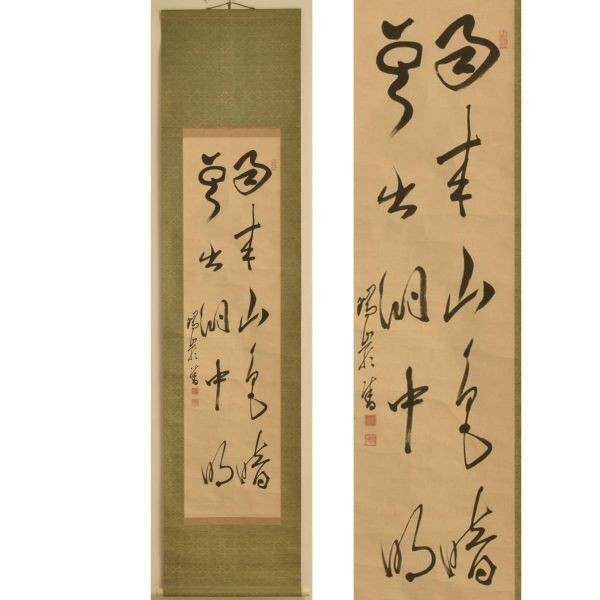 雨来山色暗
雲出洞中明
瑞巌書